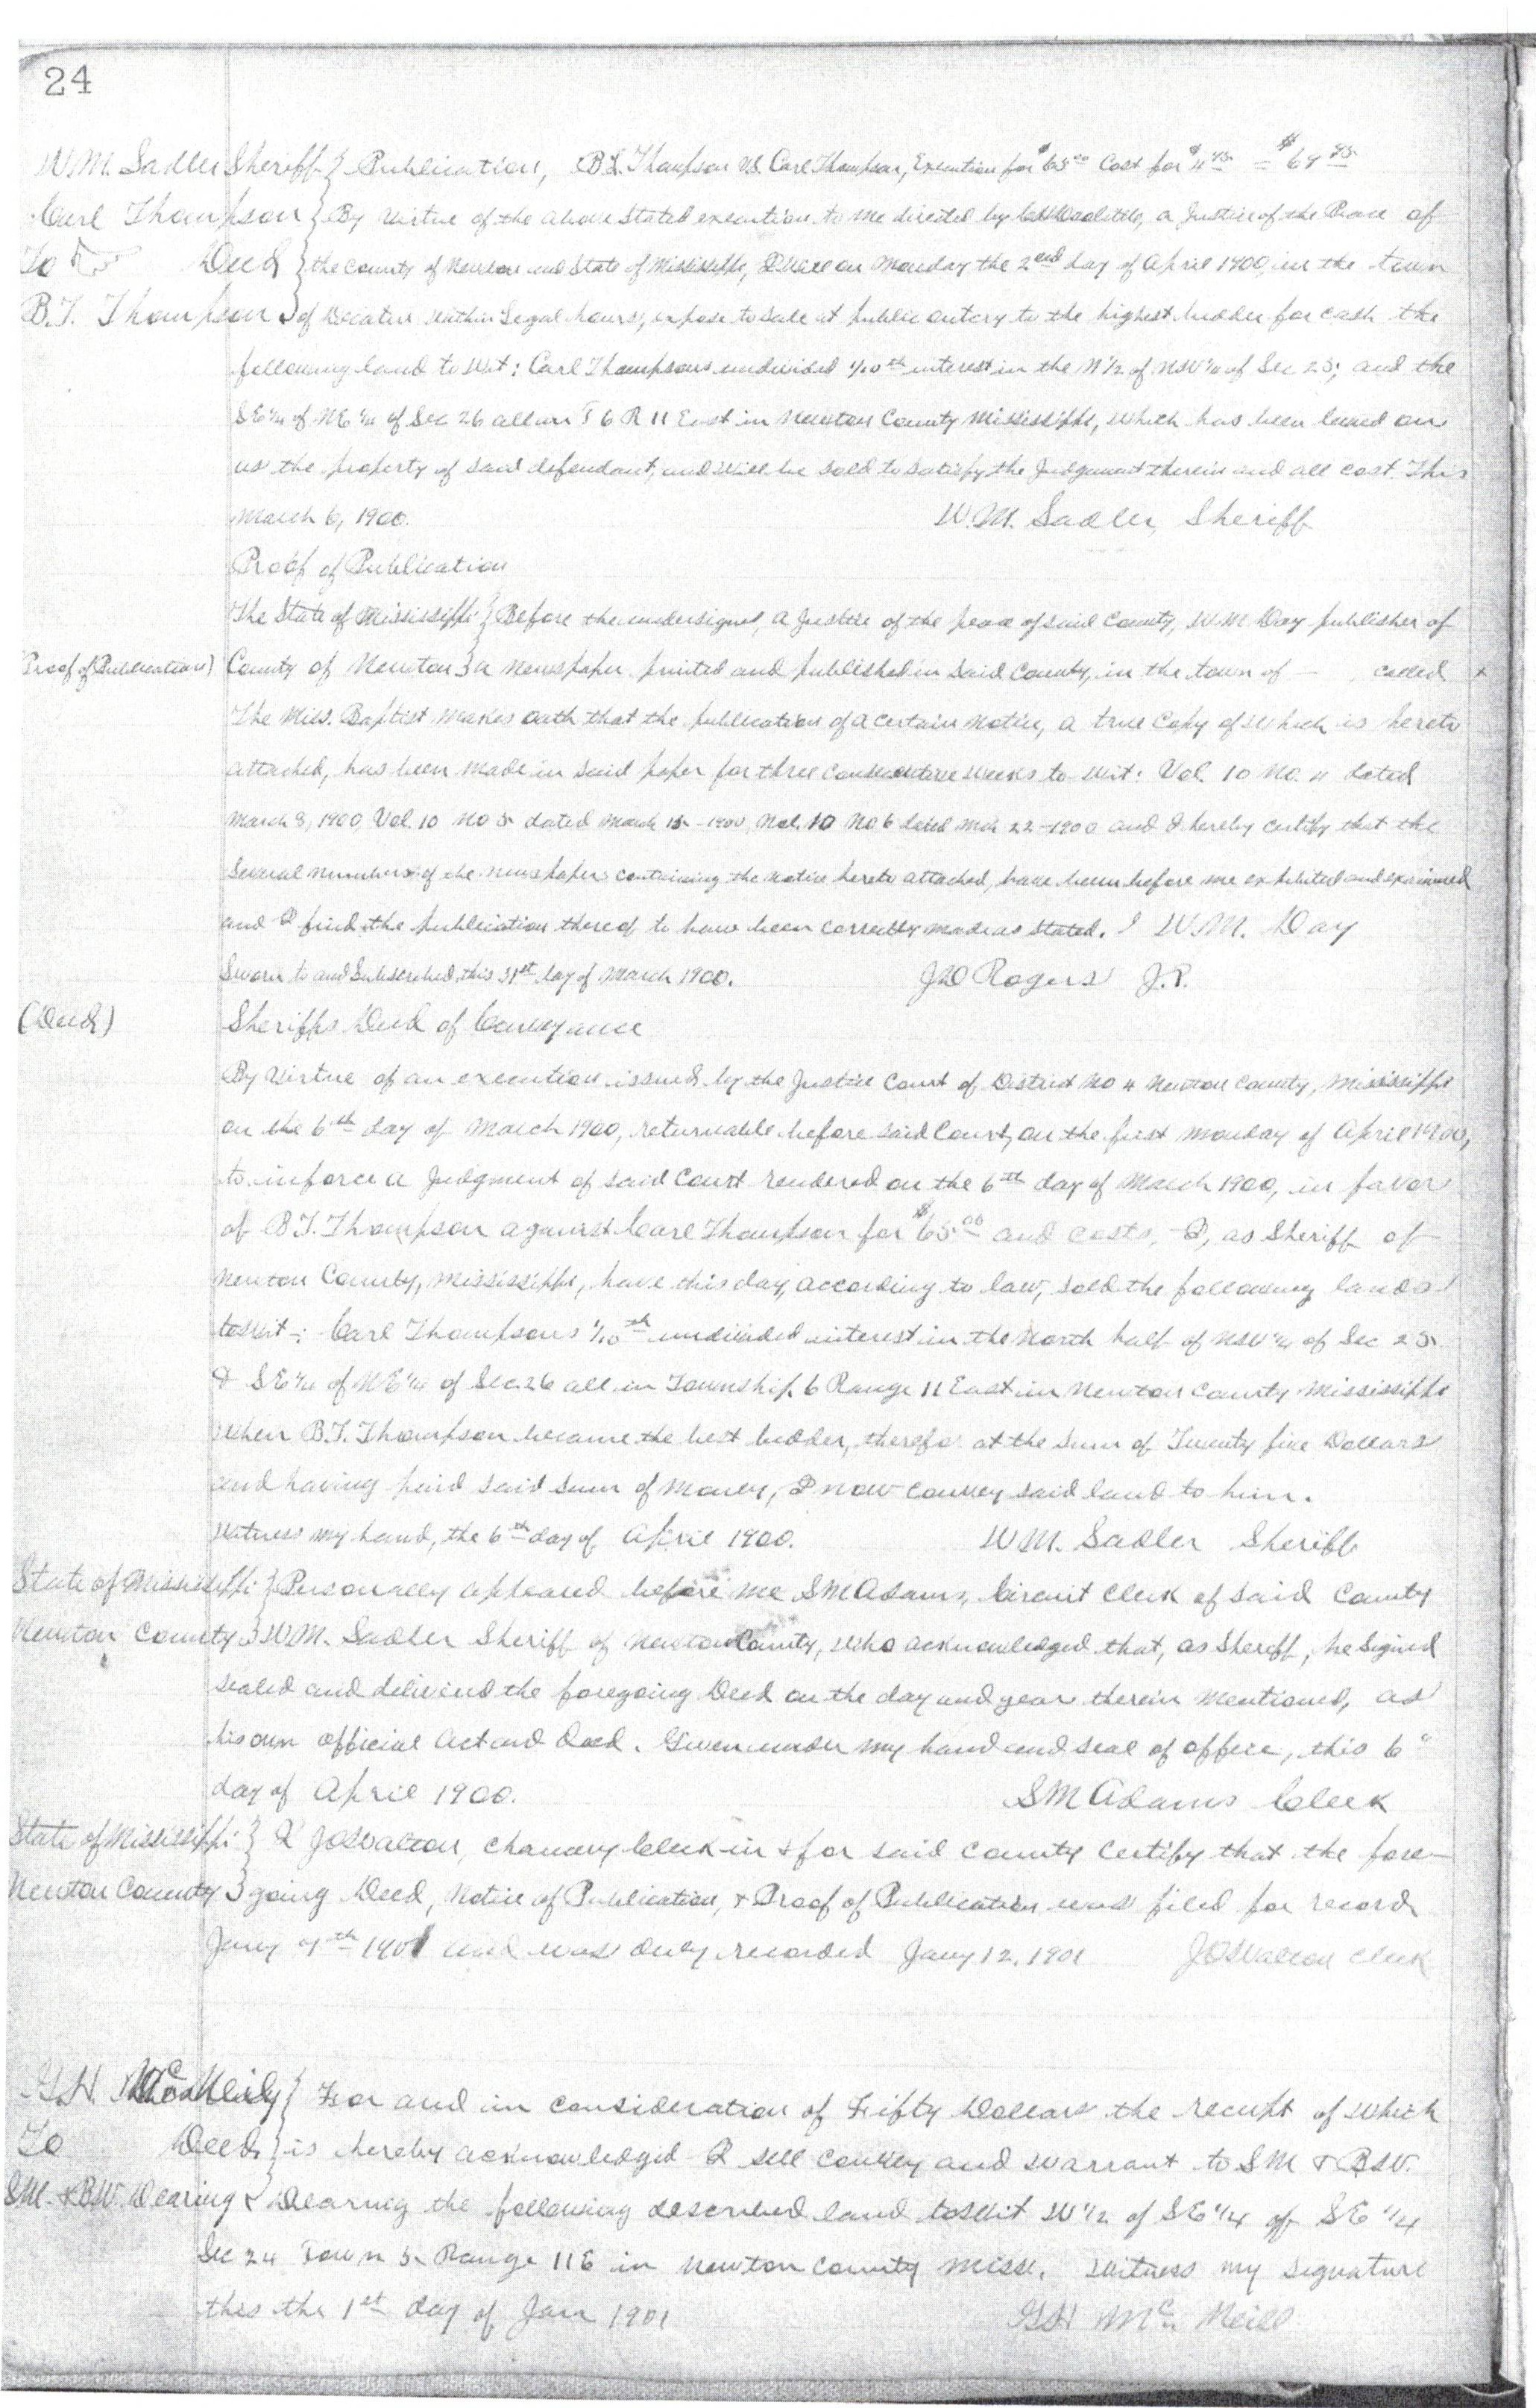 24
W.M. Sadler Sheriff } Publication, B.T. Thompson vs. Carl Thompson, Execution for $65.00 Cost for $4.45 = $69.45
Carl Thompson } By virtue of the above stated execution to me directed by a Justice of the Peace of
To Deed } the county of Newton and State of Mississippi, I will on Monday the 2nd day of April 1900, in the town
B.T. Thompson } of Decatur within Legal hours, expose to sale at public outcry to the highest bidder for cash the
following land to wit: Carl Thompsons undivided 1/10th interest in the N 1/2 of NW 1/4 of Sec 25; and the
SE 1/4 of NE 1/4 of Sec 26 all in T 6 R 11 East in Newton County Mississippi, which has been levied on
as the property of said defendant, and will be sold to satisfy the Judgment therein and all cost. This
March 6, 1900. W.M. Sadler, Sheriff
Proof of Publication
The State of Mississippi } Before the undersigned, a Justice of the peace of said County, W M Day publisher of
(Proof of Publication) County of Newton } a newspaper printed and published in said County, in the town of — , called x
The Miss. Baptist makes oath that the publication of a certain notice, a true copy of which is hereto
attached, has been made in said paper for three consecutive weeks to wit: Vol. 10 No. 4 dated
March 8, 1900, Vol. 10 No 5 dated March 15 - 1900, Vol. 10 No 6 dated Mch 22 - 1900 and I hereby certify that the
several numbers of the newspaper containing the notice hereto attached, have been before me exhibited and examined
and I find the publication thereof to have been correctly made as stated. W.M. Day
Sworn to and Subscribed, this 31st day of March 1900. J D Rogers J.P.
(Deed) Sheriffs Deed of Conveyance
By virtue of an execution issued by the Justice Court of District No 4 Newton County, Mississippi
on the 6th day of March 1900, returnable before said Court, on the first Monday of April 1900,
to inforce a Judgment of said Court rendered on the 6th day of March 1900, in favor
of B.T. Thompson against Carl Thompson for $65.00 and costs, I, as Sheriff of
Newton County, Mississippi, have this day, according to law, sold the following lands
towit: Carl Thompsons 1/10th undivided interest in the North half of NW 1/4 of Sec 25
& SE 1/4 of NE 1/4 of Sec. 26 all in Township 6 Range 11 East in Newton County Mississippi
when B.T. Thompson became the best bidder, therefor at the sum of Twenty five Dollars
and having paid said sum of money, I now convey said land to him.
Witness my hand, the 6th day of April 1900. W M. Sadler Sheriff
State of Mississippi } Personally appeared before me S M Adams, Circuit Clerk of said County
Newton County } W.M. Sadler Sheriff of Newton County, who acknowledged that, as Sheriff, he signed
sealed and delivered the foregoing Deed on the day and year therein mentioned, as
his own official act and deed. Given under my hand and seal of office, this 6"
day of April 1900. S M Adams Clerk
State of Mississippi } I J O Walton, Chancery Clerk in & for said County Certify that the fore-
Newton County } going Deed, Notice of Publication, & Proof of Publication was filed for record
Jany 7th 1901 and was duly recorded Jany 12, 1901 J O Walton Clerk
G.H. } For and in consideration of Fifty Dollars the receipt of which
To Deed } is hereby acknowledged I sell convey and warrant to S M & B W.
S M. & B W. Dearing } Dearing the following described land towit W 1/2 of SE 1/4 of SE 1/4
Sec 24 Town 5 Range 11 E in Newton County Miss. Witness my signature
this the 1st day of Jan 1901 G H Mc Neill